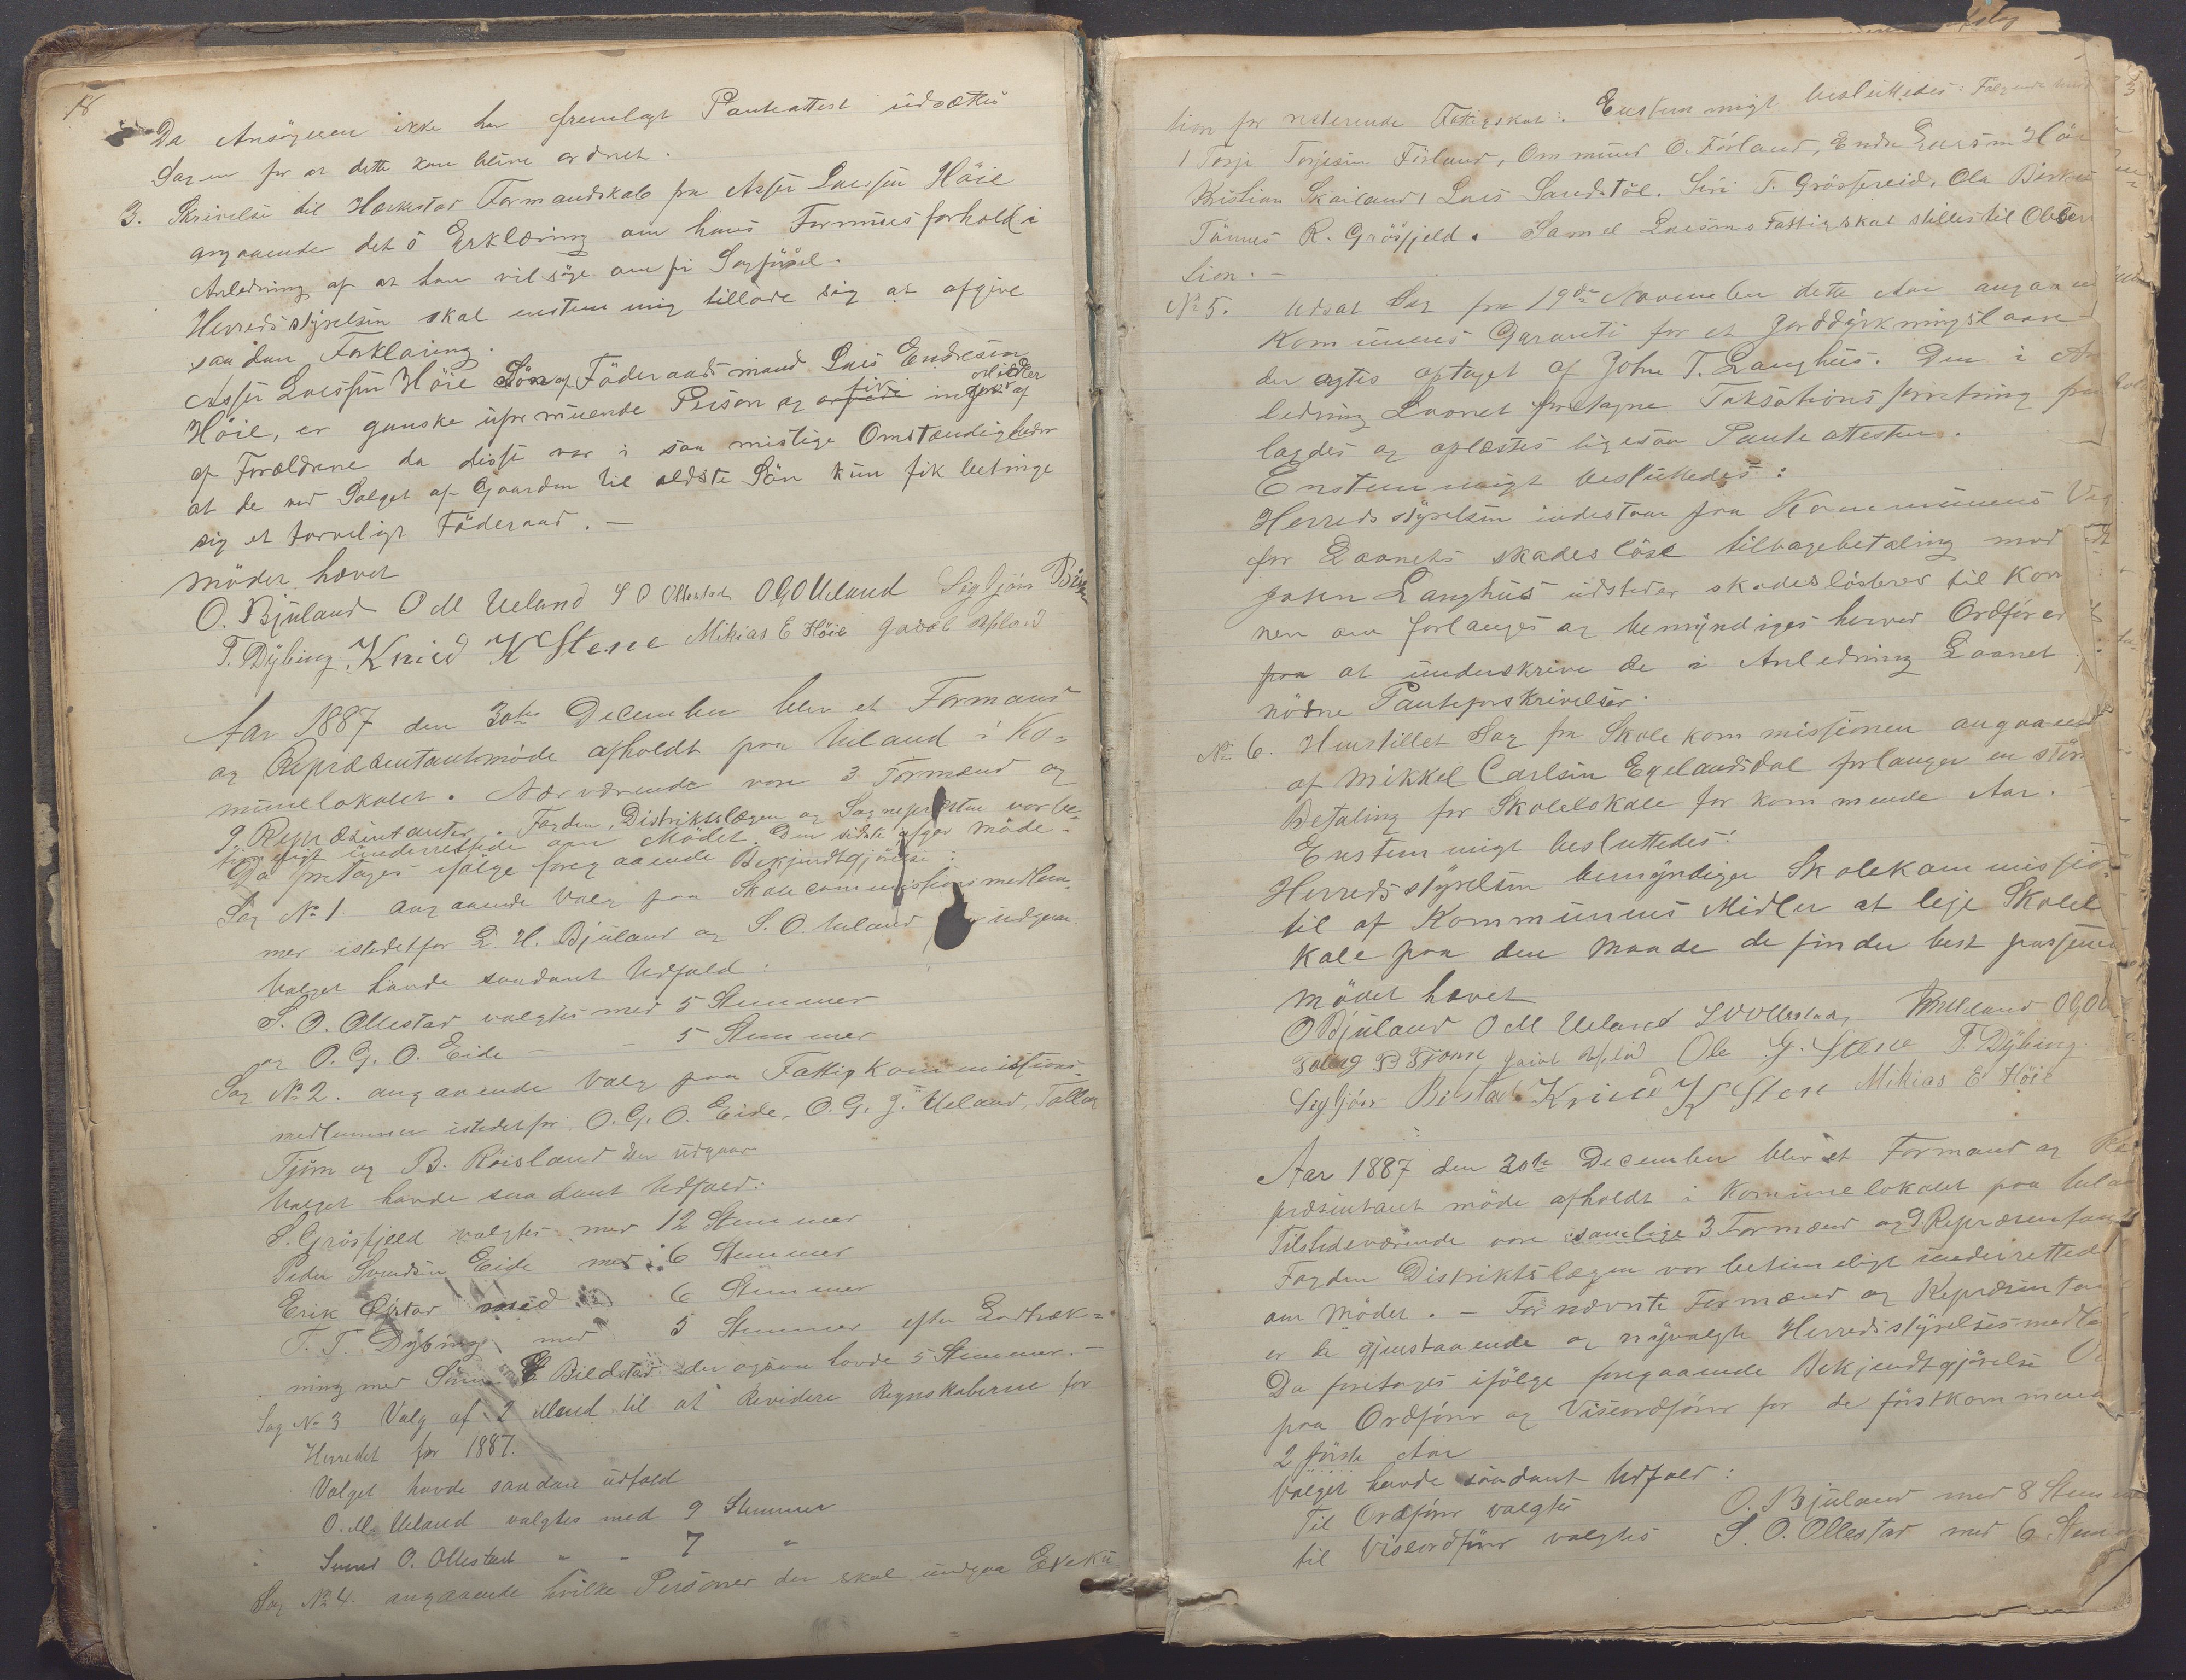 18
Da Ansøgeren ikke har fremlagt Panteattest udsættes
Sagen for at dette kan blive ordnet.
3. Skrivelse til Hæskestad Formandskab fra Asser Laessen Høie
angaaende det ö Erklæring om hans Formuesforhold i
Anledning af at han vil søge om fri Sagførsel.
Herredsstyrelsen skal enstemmig tillade sig at afgive
saadan Forklaring.
Asser Laessen Høie Søn af Föderaadsmand Laes Endresen
Höie, er ganske uformuende Person og fik ingen Midler
af Forældrene da disse var i saa mislige Omstændigheder
at de ved Salget af Gaarden til ældste Sön kun fik betinge
sig et tarveligt Föderaad. —
Mödet hævet
O. Bjuland O M Ueland S O Ollestad O G O Ueland Sigbjörn
T. Dybing Knud K Stene Mikias E Höie Gabriel
Aar 1887 den 30te December blev et Formands
og Repræsentantmöde afholdt paa Ueland i Ko-
munelokalet. Nærværende vare 3 Formænd og
9 Repræsentanter. Fogden, Distriktslægen og Sognepresten var be-
timeligt underrettede om Mödet. Den sidste afgav möde.
Da foretages ifølge foregaaende Bekjendtgjörelse:
Sag No 1. angaaende Valg paa Skolecommissionsmedlem-
mer istedetfor L. H. Bjuland og S. O. Ueland udgaar.
Valget havde saadant Udfald:
S. O. Ollestad valgtes med 5 Stemmer
og O. G. O. Eide — - 5 Stemmer
Sag No 2. angaaende Valg paa Fattigkommissions-
medlemmer istedetfor O. G. O. Eide, O. G. J. Ueland, Tolleg
Tjörn og B. Röisland der udgaar
Valget havde saadant Udfald:
S. Grösfjeld valgtes med 12 Stemmer
Peder Svendsen Eide med 6 Stemmer
Erik Östad med 6 Stemmer
T. T. Dybing med 5 Stemmer efter Lodtræk-
ning med Bilestad der ogsaa havde 5 Stemmer. —
Sag No 3 Valg af 2 Mænd til at Revidere Regnskaberne for
Herredet for 1887.
Valget havde saadan udfald
O. M. Ueland valgtes med 9 Stemmer
Svend O. Ollestad " - 7 "
Sag No 4. angaaende hvilke Personer der skal undgaa Exeku-
tion for resterende Fattigskat: Enstemmigt besluttedes: Følgende
1 Torje Torjesen Förland, Ommund O. Förland, Endre Larsen Höi
Kristian Skailand, Laes Sandstöl. Siri T. Grösfjeld, Ola
Tönnes R. Grösfjeld. Samel Laesens Fattigskat stilles til Obser
tion. —
No 5. Udsat Sag fra 19de November dette Aar angaaend
Kommunens Garanti for et Jorddyrkningslaan
der agtes optaget af John T. Langhus. Den i An
ledning Laanet foretagne Taksationsforretning frem
lagdes og oplæstes ligesaa Panteattesten.
Enstemmigt besluttedes:
Herredsstyrelsen indestaar paa Kommunens Veg
for Laanets skadeslöse tilbagebetaling mod
John Langhus udsteder skadeslösbrev til Kom
nen om forlanges og bemyndiges herved Ordförer
paa at underskrive de i Anledning Laanet
nödne Panteforskrivelser.
No 6. Henstillet Sag fra Skolekommissionen angaaend
af Mikkel Carlsen Egelandsdal forlanger en större
Betaling for Skolelokale for kommende Aar. —
Enstemmigt besluttedes:
Herredsstyrelsen bemyndiger Skolekommissio-
til af Kommunens Midler at leje Skolel
kale paa den Maade de finder best passende
Mödet hævet
O Bjuland O M Ueland S O Ollestad Ueland O G O
Tolleg Tjörn, Ole G. Stene T. Dybing
Sigbjörn Bilstad Knud K Stene Mikias E Höie
Aar 1887 den 30te December blev et Formand og Re
præsentant möde afholdt i Kommunelokalet paa Uelan
Tilstedeværende vare samlige 3 Formænd og 9 Repræsentant
Fogden Distriktslægen var betimeligt underrettede
om Mödet. — Fornævnte Formænd og Repræsentan
er de gjenstaaende og nyvalgte Herredsstyrelsesmedle
Da foretages ifölge foregaaende Bekjendtgjörelse V
paa Ordförer og Viseordförer for de förstkommend
2 förste Aar
Valget havde saadant Udfald:
Til Ordförer valgtes O. Bjuland med 8 Stemm
til Viseordförer valgtes S. O. Ollestad med 6 Stem